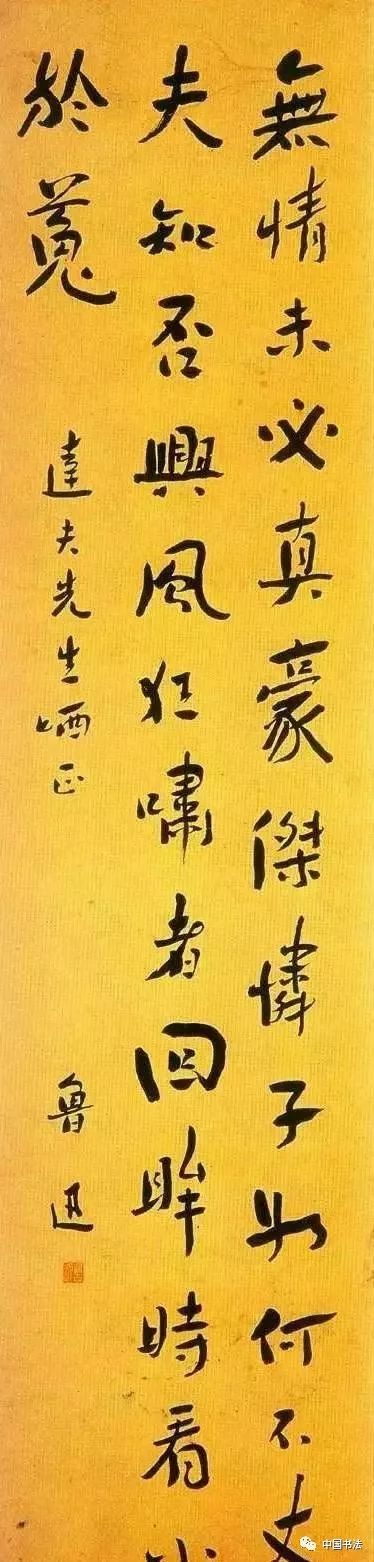 無情未必真豪傑憐子如何不丈
夫知否興風狂嘯者回眸時看
於菟
達夫先生哂正
魯迅
中国书法